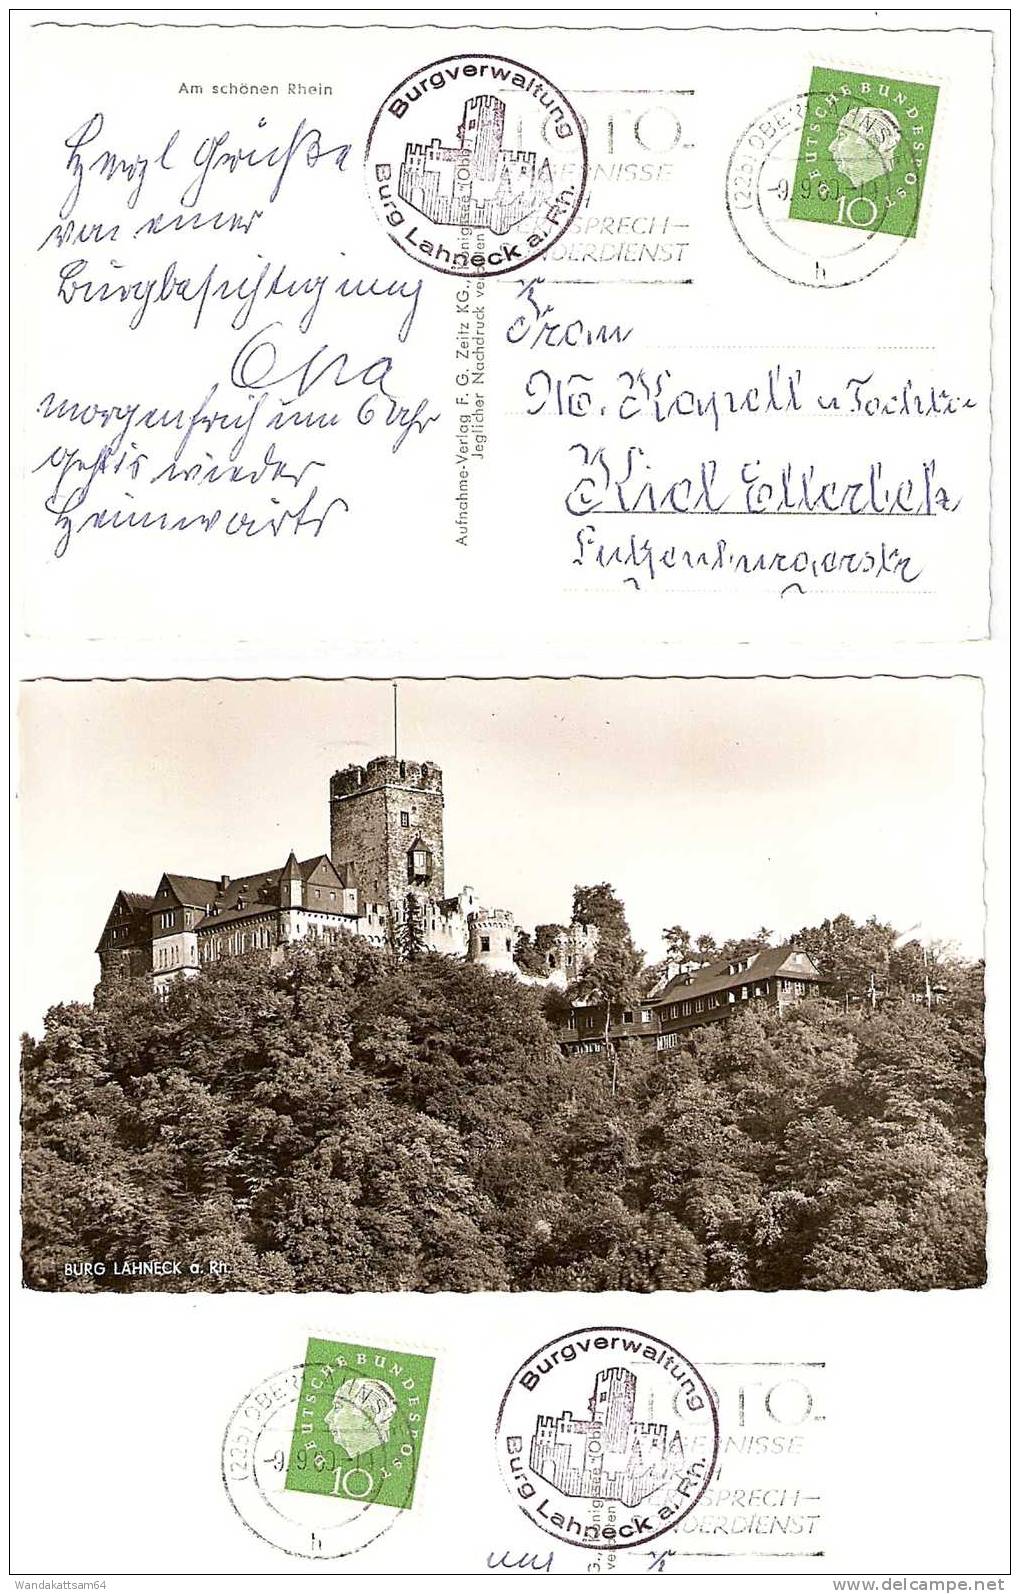 Am schönen Rhein
Herzl Grüße
von einer
Burgbesichtigung
Opa
morgen früh um 6 Uhr
geht's wieder
Heimwärts
Burgverwaltung
Burg Lahneck a. Rh.
TOTO-
ERGEBNISSE
FERNSPRECH-
SONDERDIENST
(22b) OBERLAHNSTEIN
-9.9.60
h
DEUTSCHE BUNDESPOST
10
Aufnahme-Verlag F. G. Zeitz KG., Königssee (Obb.)
Jeglicher Nachdruck verboten
Fram
Kapell u Tochter
Kiel Ellerbek
BURG LAHNECK a. Rh.
DEUTSCHE BUNDESPOST
10
(22b) OBERLAHNSTEIN
-9.9.60
h
Burgverwaltung
Burg Lahneck a. Rh.
TOTO-
ERGEBNISSE
FERNSPRECH-
SONDERDIENST
G., Königssee (Obb.)
verboten
Wandakattsam64
www.delcampe.net